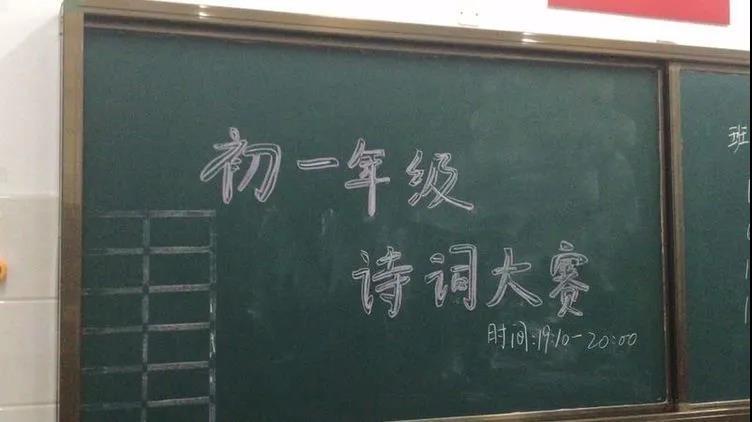 初一年级
诗词大赛
时间:19:10-20:00
班